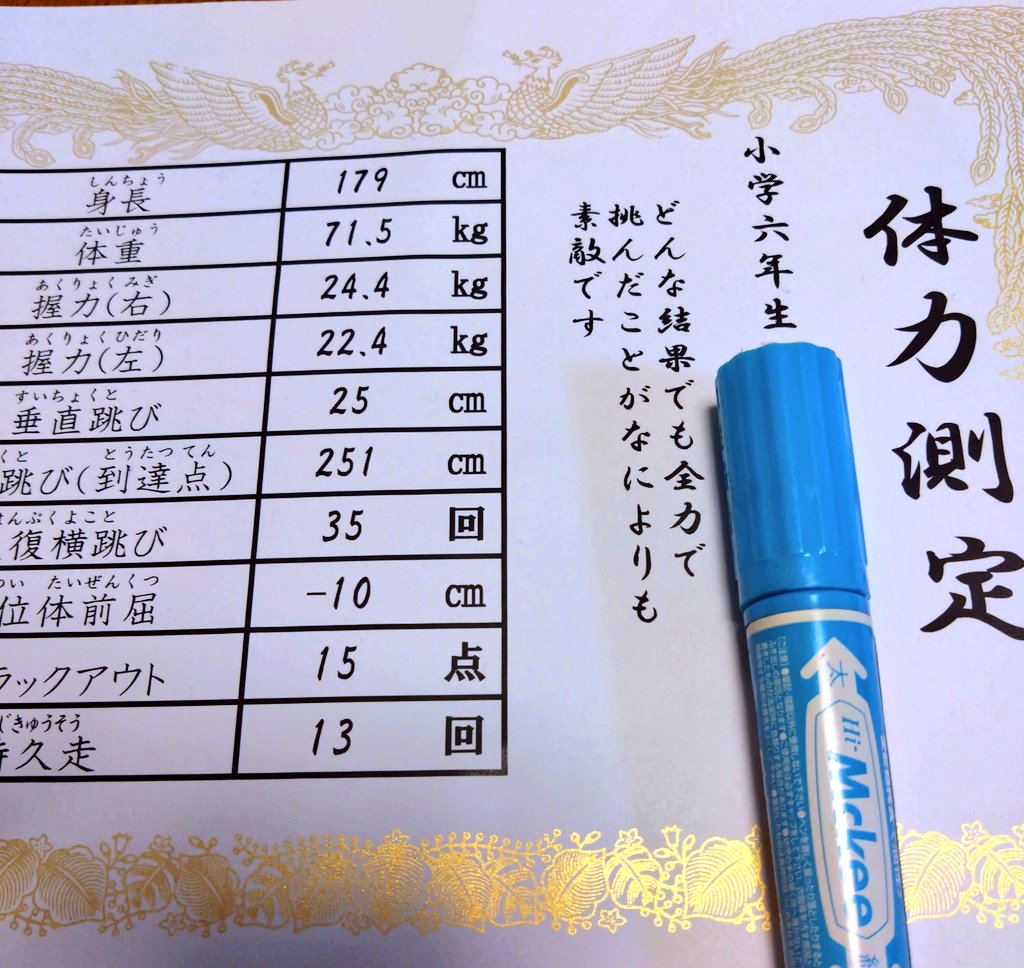 体力測定
小学六年生
どんな結果でも全力で
挑んだことがなによりも
素敵です
しんちょう
身長 179 cm
たいじゅう
体重 71.5 kg
あくりょくみぎ
握力(右) 24.4 kg
あくりょくひだり
握力(左) 22.4 kg
すいちょくと
垂直跳び 25 cm
くと とうたつてん
跳び(到達点) 251 cm
んぷくよこと
復横跳び 35 回
い たいぜんくつ
位体前屈 -10 cm
ラックアウト 15 点
じきゅうそう
持久走 13 回
太
Hi-Mckee